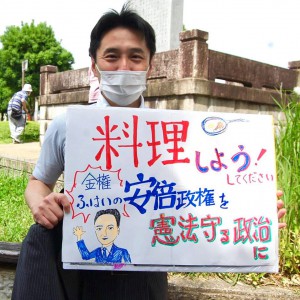 料理しよう!
してください
金権
ふはいの安倍政権を
憲法守る政治
に